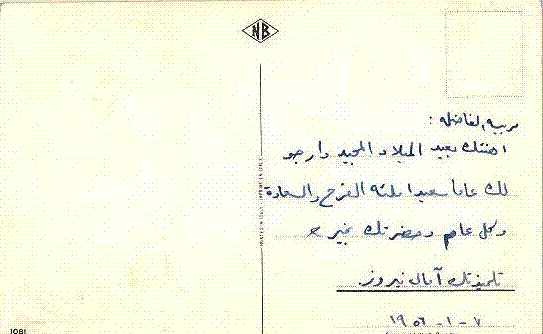 NB
مربيه الفاضله :
اهنئك بعيد الميلاد المجيد وارجو
لك عاما سعيدا ملئه الفرح والسعادة
وكل عام وحضرتك بخير
تلميذتك آمال نيروز
٧ - ١ - ١٩٥٦
1081